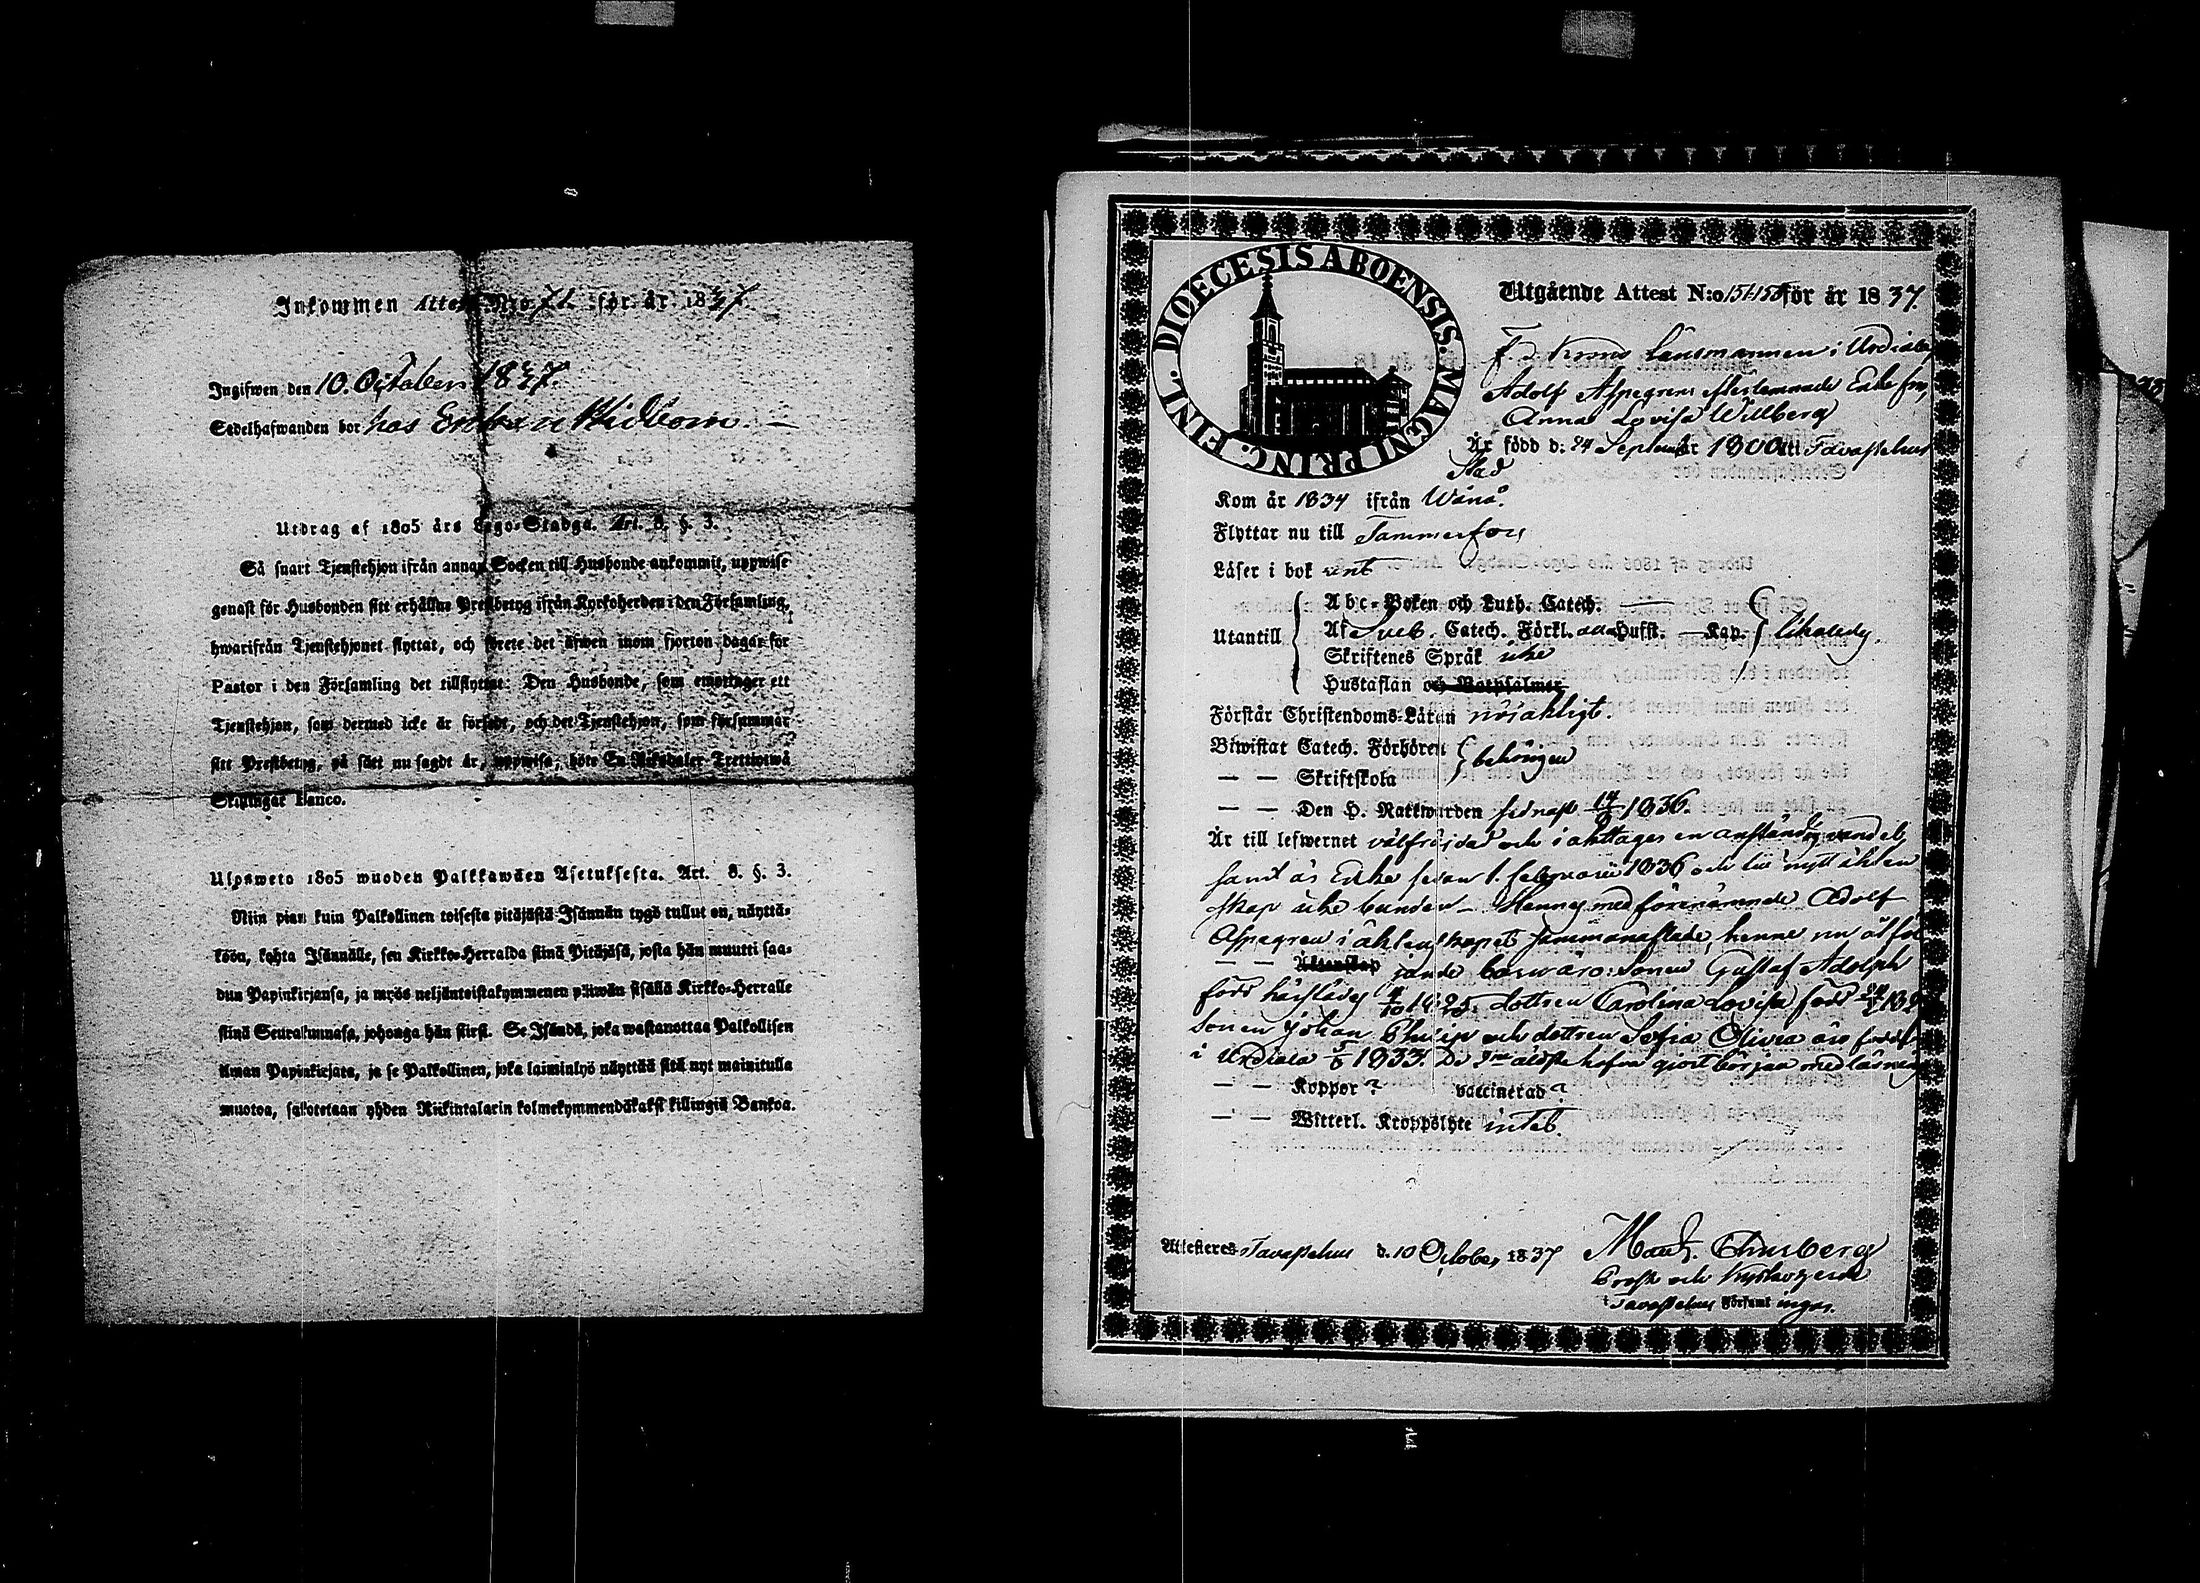 Inkommen Attest Nro 71. för år 1837.
Ingifwen den 10. October 1837.
Sedelhafwanden bor hos Enkan Widbom.
Utdrag af 1805 års Lego-Stadga. Art. 8. §. 3.
Så snart Tjenstehjon ifrån annan Socken till Husbonde ankommit, uppwise
genast för Husbonden sitt erhållne Prestbetyg ifrån Kyrkoherden i den Församling,
hwarifrån Tjenstehjonet flyttat, och förete det äfwen inom fjorton dagar för
Pastor i den Församling det tillflyttat: Den Husbonde, som emottager ett
Tjenstehjon, som dermed icke är försedt, och det Tjenstehjon, som försummar
sitt Prestbetyg, på sätt nu sagdt är, uppwisa, böte En Riksdaler Trettiotwå
Skillingar Banco.
Ulosweto 1805 wuoden Palkkawäen Asetuksesta. Art. 8. §. 3.
Niin pian kuin Palkollinen toisesta pitäjästä Isännän tygö tullut on, näyttä-
köön, kohta Isännälle, sen Kirkko-Herralda siinä Pitäjäsä, josta hän muutti saa-
dun Papinkirjansa, ja myös neljäntoistakymmenen päiwän sisällä Kirkko-Herralle
siinä Seurakunnasa, johonga hän siirsi. Se Isändä, joka wastanottaa Palkollisen
ilman Papinkirjata, ja se Palkollinen, joka laiminlyö näyttää sitä nyt mainitulla
muotoa, sakotetaan yhden Riikintalarin kolmekymmendäkaksi killingiä Bankoa.
DIOECESIS ABOENSIS. MAGNI PRINC. FINL.
Utgående Attest N:o 151-155 för år 1837.
F. d. Krono Länsmannen i Urdiala
Adolf Aspegrens efterlemnade Enka fru,
Anna Lovisa Willberg
Är född d: 24 September 1800 i Tavastehus
Stad
Kom år 1834 ifrån Wånå.
Flyttar nu till Tammerfors
Läser i bok rent
Abc-Boken och Luth. Catech. —
Utantill Af Sveb. Catech. Förkl. alla Hufst. — Kap. likaledes.
Skriftenes Språk icke
Hustaflan och Botpsalmer
Förstår Christendoms-Läran nöjaktigt.
Biwistat Catech. Förhören behörigen
— — Skriftskola
— — Den H. Nattwarden sednast 1836.
Är till lefwernet välfrejdad och iakttager en anständig vandel,
samt är Enka sedan 1. februarii 1836 och till nytt äkten
skap icke bunden — Hennes med förenämnde Adolf
Aspegren i äktenskapet sammanaflade, henne nu åtföl
— — Äktenskap jande barn äro: sonen Gustaf Adolph
född härstädes 1825, dottren Carolina Lovisa född
Sonen Johan Philip och dottren Sofia Olivia äro födde
i Urdiala 1833. De 2ne äldste hafva gjort början med läsning
— — Koppor? vaccinerad?
— — Witterl. Kroppslyte intet.
Attesteres Tavastehus d. 10 October 1837
Prost och Kyrkoherde
i Tavastehus Församlingar.